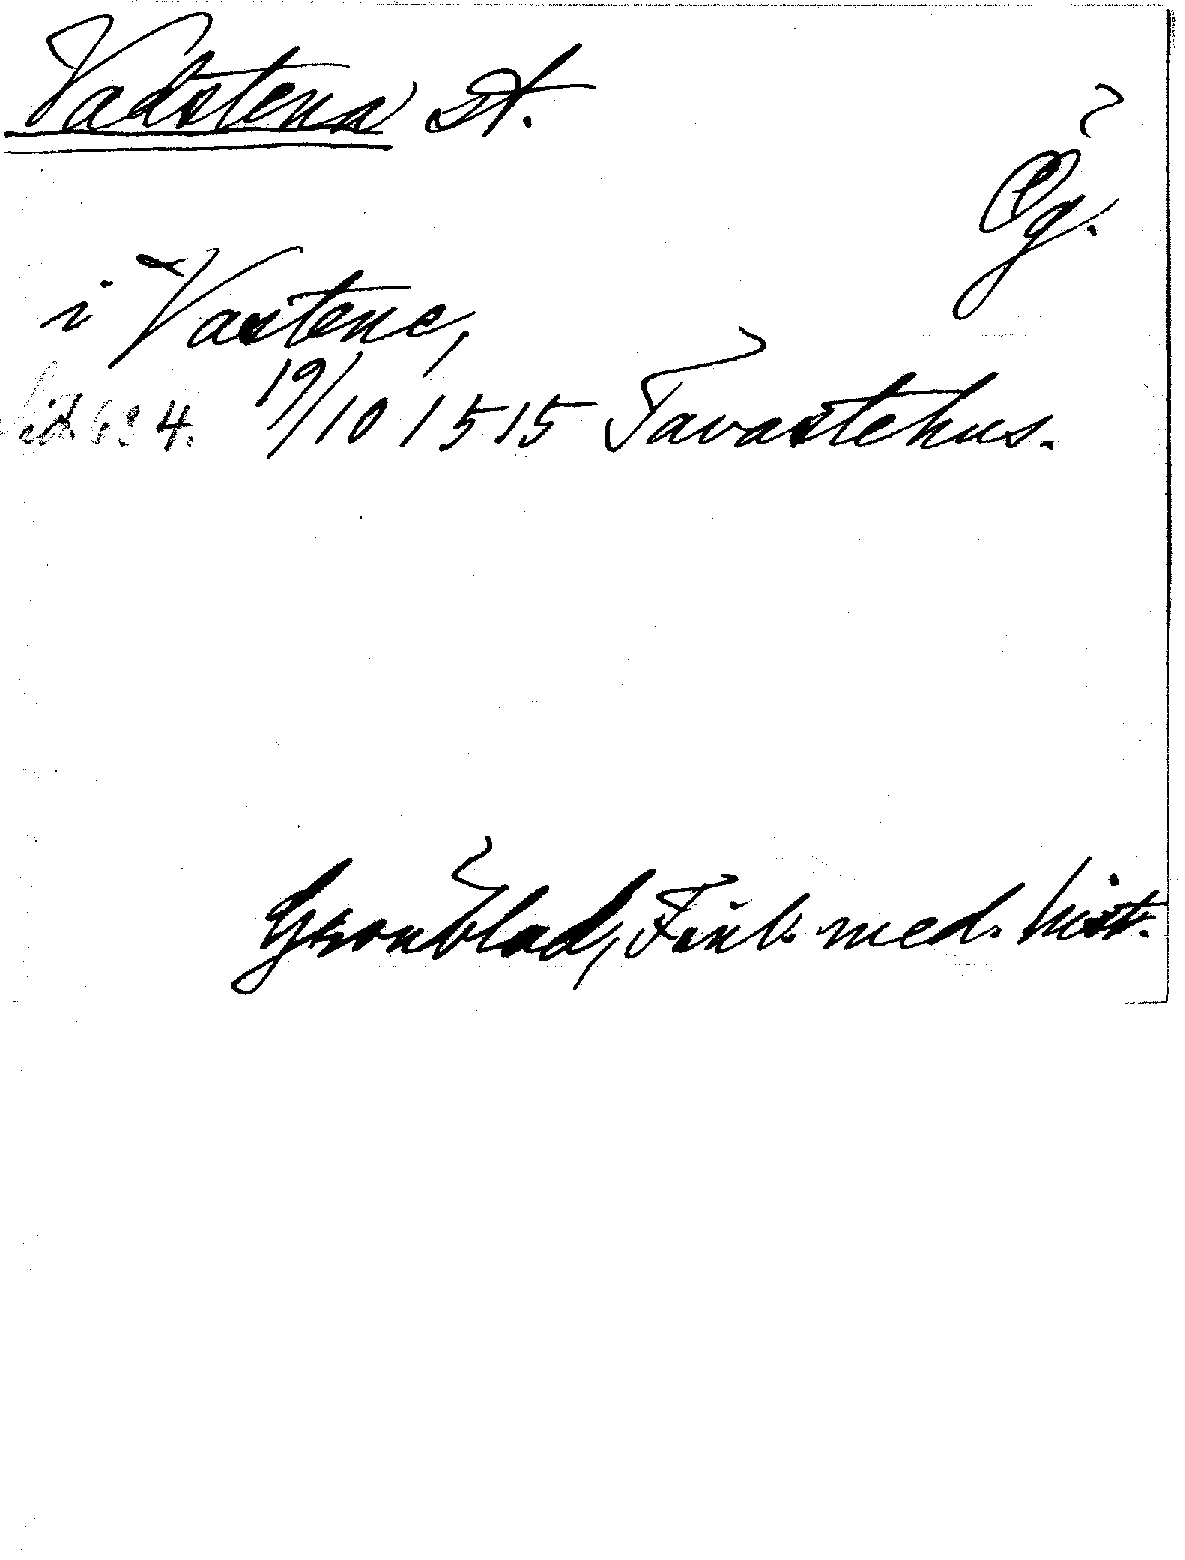 Vadstena st.
Ög.
i Vastene,
Sid. 634. 19/10 1515 Tavastehus.
Grönblad, Finl. med. hist.